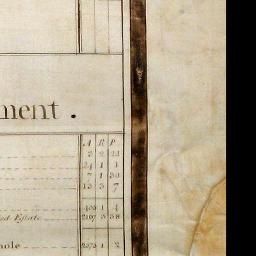 ment .
A R P
3 2 23
24 1 1
7 1 34
13 3 7
403 1 4
ed Estate 2197 3 38
hole 2573 1 2